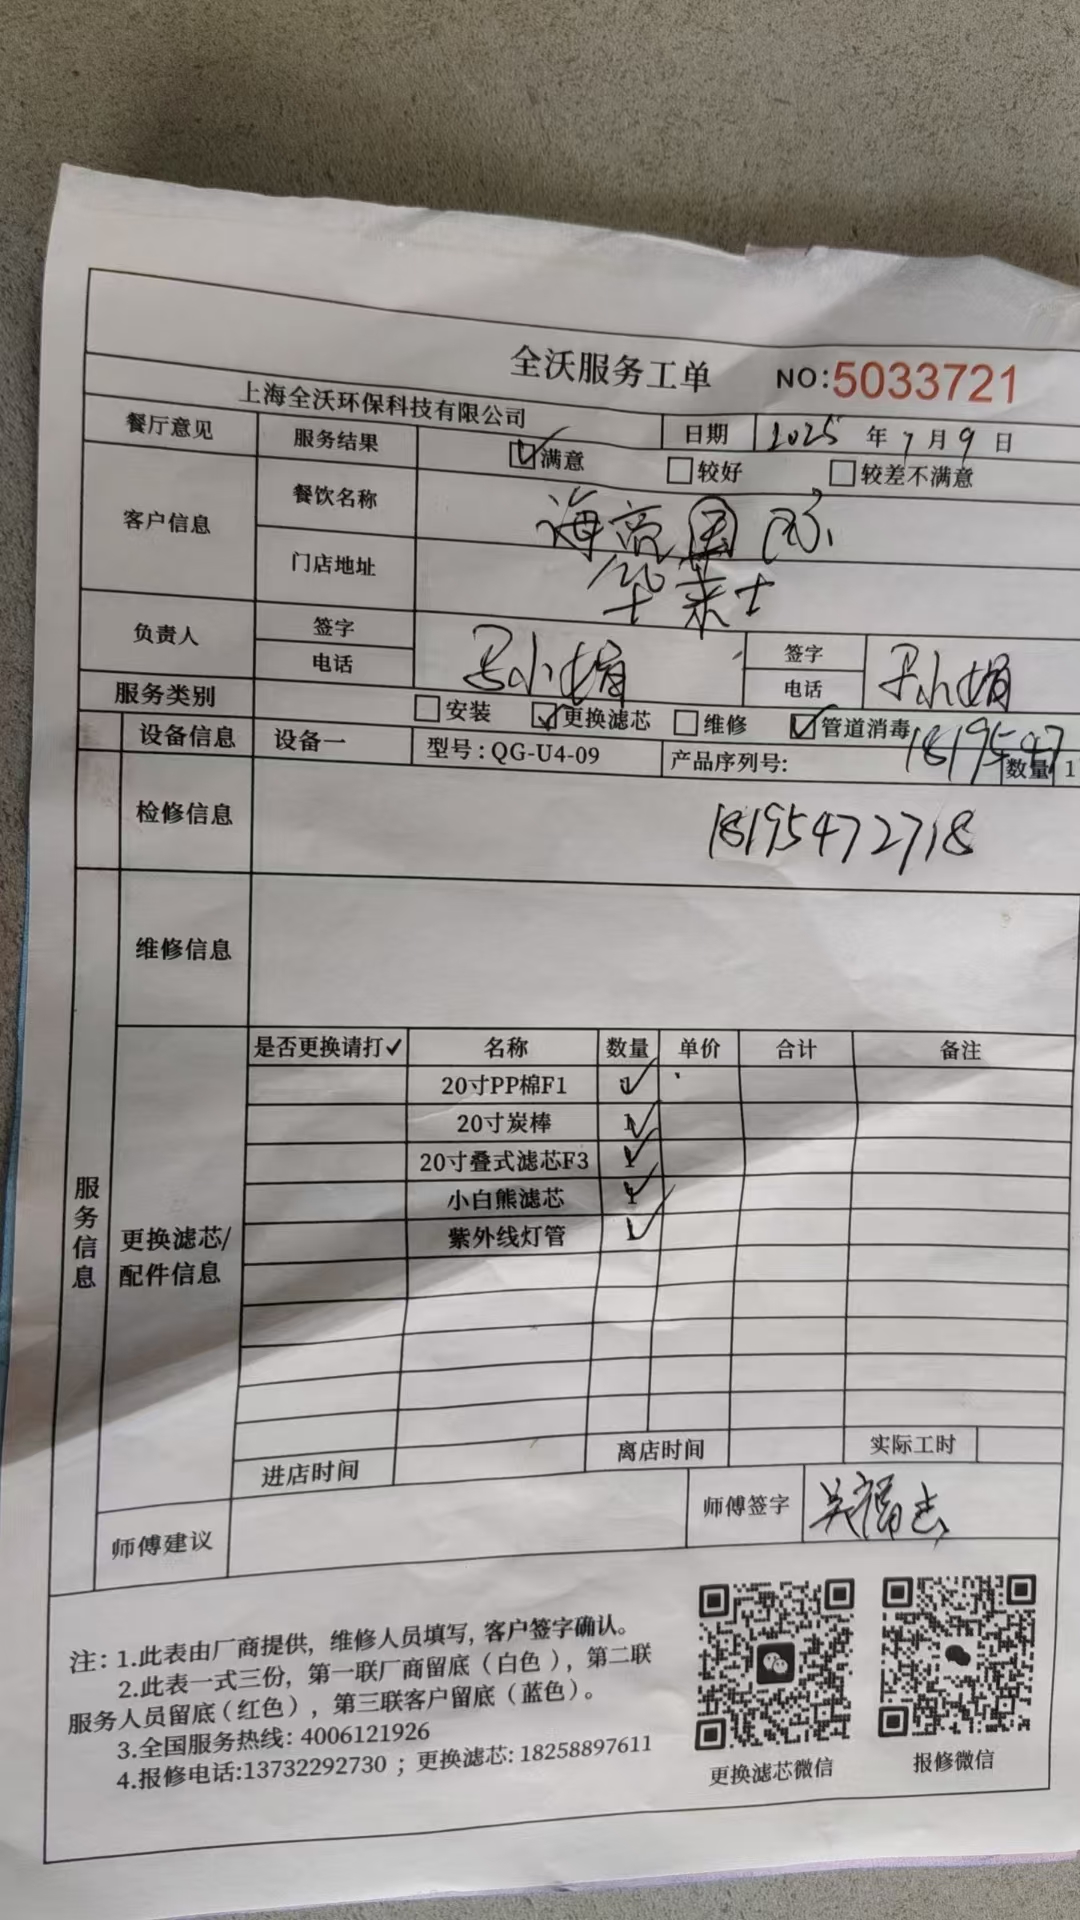 全沃服务工单 NO:5033721
上海全沃环保科技有限公司
日期 2025 年 7 月 9 日
餐厅意见 服务结果 满意 较好 较差不满意
客户信息 餐饮名称 海亮国际
门店地址 华莱士
负责人 签字 马小娟 签字 马小娟
电话 电话
服务类别 安装 更换滤芯 维修 管道消毒
1819547
设备信息 设备一 型号:QG-U4-09 产品序列号: 数量 1
检修信息 18195472718
维修信息
服务信息
更换滤芯/配件信息
是否更换请打✓ 名称 数量 单价 合计 备注
20寸PP棉F1 1
20寸炭棒 1
20寸叠式滤芯F3 1
小白熊滤芯 1
紫外线灯管 1
进店时间 离店时间 实际工时
师傅建议 师傅签字 吴福志
注: 1.此表由厂商提供, 维修人员填写, 客户签字确认。
2.此表一式三份, 第一联厂商留底(白色), 第二联
服务人员留底(红色), 第三联客户留底(蓝色)。
3.全国服务热线: 4006121926
4.报修电话:13732292730 ; 更换滤芯: 18258897611
更换滤芯微信 报修微信